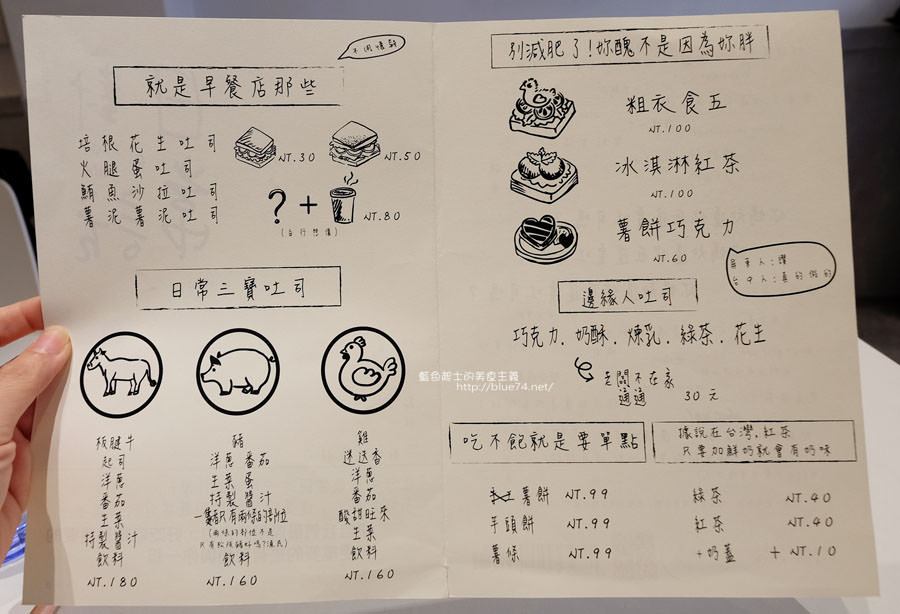 不用懷疑
就是早餐店那些
培根花生吐司
火腿蛋吐司
鮪魚沙拉吐司
薯泥薯泥吐司
NT.30
NT.50
? + NT.80
(自行想像)
日常三寶吐司
板腱牛
起司
洋蔥
番茄
生菜
特製醬汁
飲料
NT.180
豬
洋蔥 番茄
生菜 蛋
特製醬汁
一隻豬只有兩條的部位
(兩條的部位不是
只有松阪豬好嗎?
飲料
NT.160
雞
迷迭香
洋蔥
番茄
酸甜旺來
生菜
飲料
NT.160
別減肥了!妳醜不是因為妳胖
粗衣食五
NT.100
冰淇淋紅茶
NT.100
薯餅巧克力
NT.60
屏東人:讚
台中人:真的假的
邊緣人吐司
巧克力.奶酥.煉乳.綠茶.花生
老闆不在家
通通 30元
吃不飽就是要單點
據說在台灣,紅茶
只要加鮮奶就會有奶味
薯餅 NT.99
芋頭餅 NT.99
薯條 NT.99
綠茶 NT.40
紅茶 NT.40
+奶蓋 + NT.10
藍色起士的美食主義
http://blue74.net/